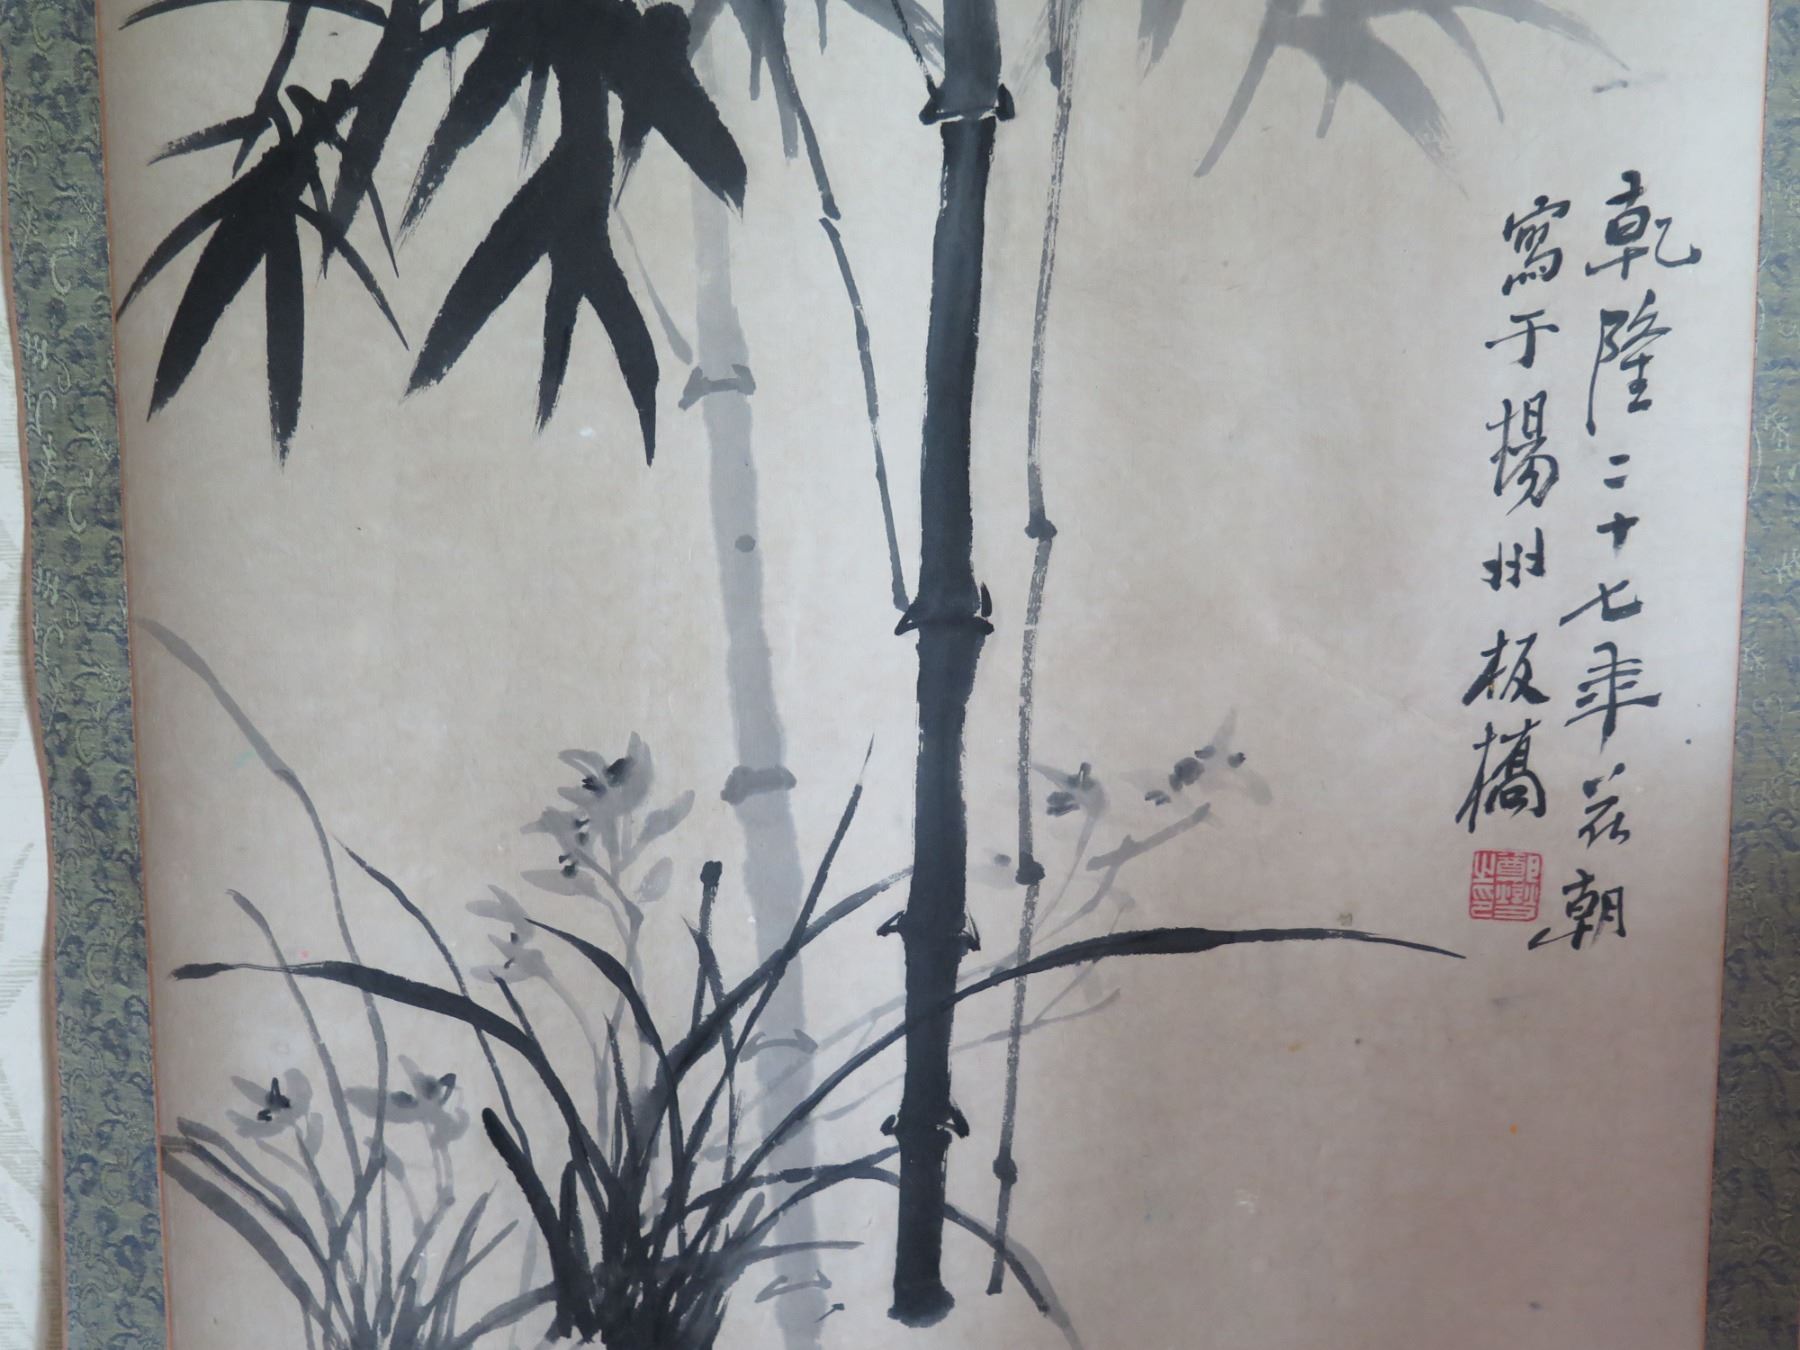 乾隆二十七年花朝
寫于揚州板橋
鄭燮之印